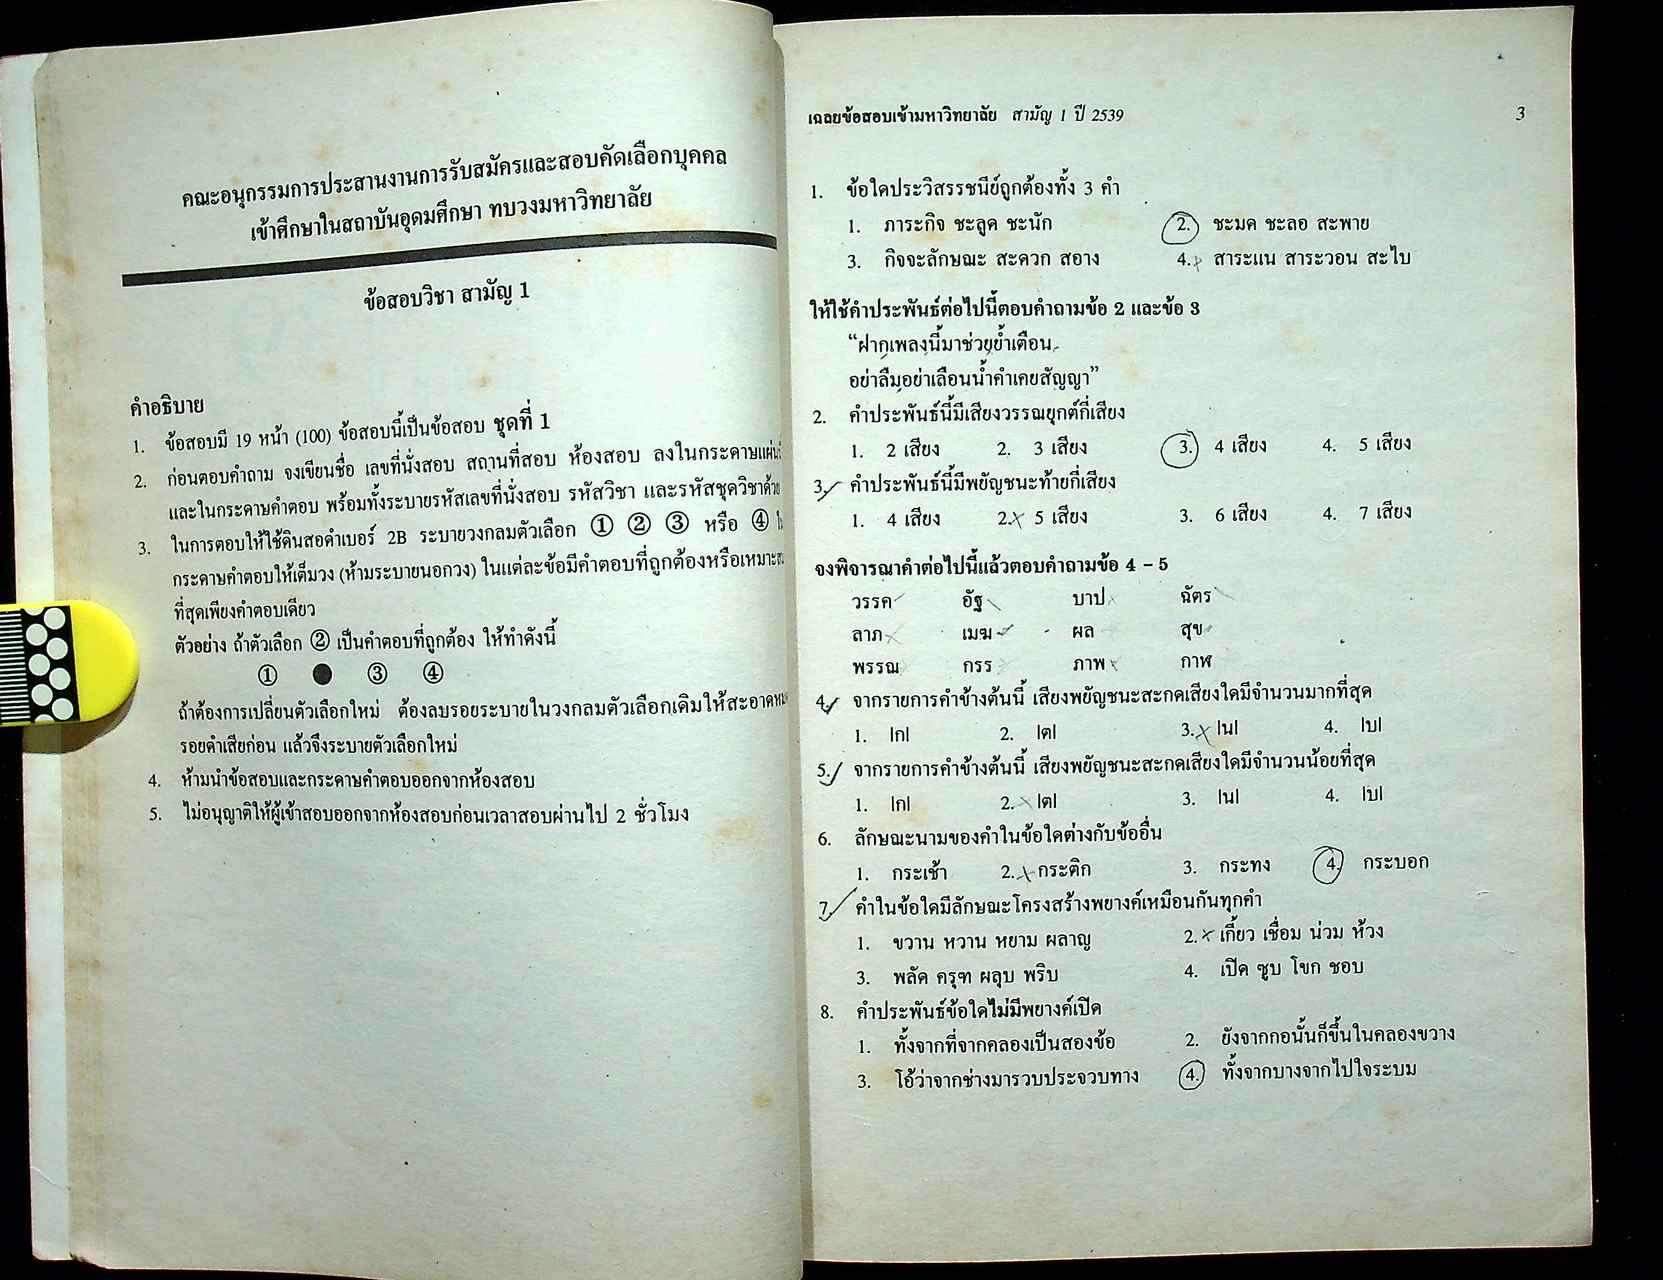 คณะอนุกรรมการประสานงานการรับสมัครและสอบคัดเลือกบุคคล
เข้าศึกษาในสถาบันอุดมศึกษา ทบวงมหาวิทยาลัย
ข้อสอบวิชา สามัญ 1
คำอธิบาย
1. ข้อสอบมี 19 หน้า (100) ข้อสอบนี้เป็นข้อสอบ ชุดที่ 1
2. ก่อนตอบคำถาม จงเขียนชื่อ เลขที่นั่งสอบ สถานที่สอบ ห้องสอบ ลงในกระดาษแผ่น
และในกระดาษคำตอบ พร้อมทั้งระบายรหัสเลขที่นั่งสอบ รหัสวิชา และรหัสชุดวิชาด้วย
3. ในการตอบให้ใช้ดินสอดำเบอร์ 2B ระบายวงกลมตัวเลือก ① ② ③ หรือ ④
กระดาษคำตอบให้เต็มวง (ห้ามระบายนอกวง) ในแต่ละข้อมีคำตอบที่ถูกต้องหรือเหมาะ
ที่สุดเพียงคำตอบเดียว
ตัวอย่าง ถ้าตัวเลือก ② เป็นคำตอบที่ถูกต้อง ให้ทำดังนี้
① ● ③ ④
ถ้าต้องการเปลี่ยนตัวเลือกใหม่ ต้องลบรอยระบายในวงกลมตัวเลือกเดิมให้สะอาด
รอยดำเสียก่อน แล้วจึงระบายตัวเลือกใหม่
4. ห้ามนำข้อสอบและกระดาษคำตอบออกจากห้องสอบ
5. ไม่อนุญาติให้ผู้เข้าสอบออกจากห้องสอบก่อนเวลาสอบผ่านไป 2 ชั่วโมง
เฉลยข้อสอบเข้ามหาวิทยาลัย สามัญ 1 ปี 2539 3
1. ข้อใดประวิสรรชนีย์ถูกต้องทั้ง 3 คำ
1. ภาระกิจ ชะลูด ชะนัก 2. ชะมด ชะลอ สะพาย
3. กิจจะลักษณะ สะดวก สอาง 4. สาระแน สาระวอน สะไบ
ให้ใช้คำประพันธ์ต่อไปนี้ตอบคำถามข้อ 2 และข้อ 3
“ฝากเพลงนี้มาช่วยย้ำเตือน
อย่าลืมอย่าเลือนน้ำคำเคยสัญญา”
2. คำประพันธ์นี้มีเสียงวรรณยุกต์กี่เสียง
1. 2 เสียง 2. 3 เสียง 3. 4 เสียง 4. 5 เสียง
3. คำประพันธ์นี้มีพยัญชนะท้ายกี่เสียง
1. 4 เสียง 2. 5 เสียง 3. 6 เสียง 4. 7 เสียง
จงพิจารณาคำต่อไปนี้แล้วตอบคำถามข้อ 4 - 5
วรรค อัฐ บาป ฉัตร
ลาภ เมฆ ผล สุข
พรรณ กรร ภาพ กาฬ
4. จากรายการคำข้างต้นนี้ เสียงพยัญชนะสะกดเสียงใดมีจำนวนมากที่สุด
1. |ก| 2. |ต| 3. |น| 4. |บ|
5. จากรายการคำข้างต้นนี้ เสียงพยัญชนะสะกดเสียงใดมีจำนวนน้อยที่สุด
1. |ก| 2. |ต| 3. |น| 4. |บ|
6. ลักษณะนามของคำในข้อใดต่างกับข้ออื่น
1. กระเช้า 2. กระติก 3. กระทง 4. กระบอก
7. คำในข้อใดมีลักษณะโครงสร้างพยางค์เหมือนกันทุกคำ
1. ขวาน หวาน หยาม ผลาญ 2. เกี้ยว เชื่อม น่วม ห้วง
3. พลัด ครุฑ ผลุบ พริบ 4. เปิด ซูบ โขก ชอบ
8. คำประพันธ์ข้อใดไม่มีพยางค์เปิด
1. ทั้งจากที่จากคลองเป็นสองข้อ 2. ยังจากกอนั้นก็ขึ้นในคลองขวาง
3. โอ้ว่าจากช่างมารวบประจวบทาง 4. ทั้งจากบางจากไปใจระบม